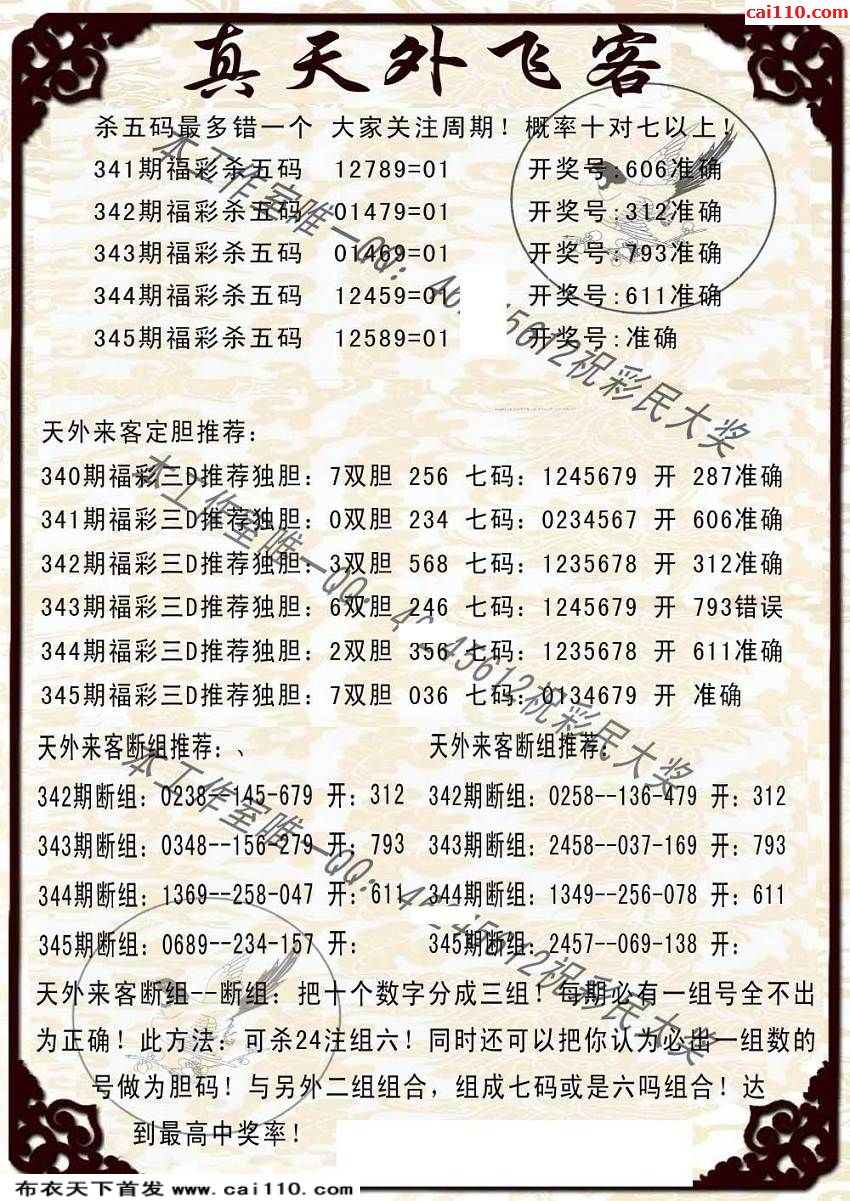 cai110.com
真天外飞客
杀五码最多错一个 大家关注周期！概率十对七以上！
341期福彩杀五码 12789=01 开奖号:606准确
342期福彩杀五码 01479=01 开奖号:312准确
343期福彩杀五码 01469=01 开奖号:793准确
344期福彩杀五码 12459=01 开奖号:611准确
345期福彩杀五码 12589=01 开奖号:准确
天外来客定胆推荐：
340期福彩三D推荐独胆：7双胆 256 七码：1245679 开 287准确
341期福彩三D推荐独胆：0双胆 234 七码：0234567 开 606准确
342期福彩三D推荐独胆：3双胆 568 七码：1235678 开 312准确
343期福彩三D推荐独胆：6双胆 246 七码：1245679 开 793错误
344期福彩三D推荐独胆：2双胆 356 七码：1235678 开 611准确
345期福彩三D推荐独胆：7双胆 036 七码：0134679 开 准确
天外来客断组推荐：、 天外来客断组推荐：
342期断组：0238--145-679 开：312 342期断组：0258--136-479 开：312
343期断组：0348--156-279 开：793 343期断组：2458--037-169 开：793
344期断组：1369--258-047 开：611 344期断组：1349--256-078 开：611
345期断组：0689--234-157 开： 345期断组：2457--069-138 开：
天外来客断组--断组：把十个数字分成三组！每期必有一组号全不出
为正确！此方法：可杀24注组六！同时还可以把你认为必出一组数的
号做为胆码！与另外二组组合，组成七码或是六吗组合！达
到最高中奖率！
本工作室唯一QQ：
祝彩民大奖
本工作室唯一QQ：
祝彩民大奖
本工作室唯一QQ：
祝彩民大奖
布衣天下首发 www.cai110.com